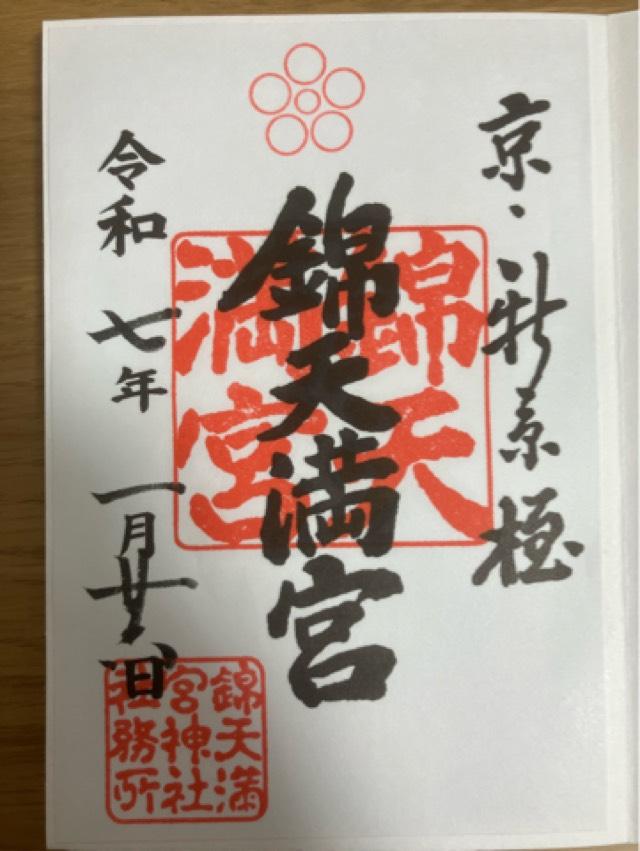 京・新京極
錦天満宮
錦天
満宮
令和七年一月廿 日
錦天満
宮神社
社務所